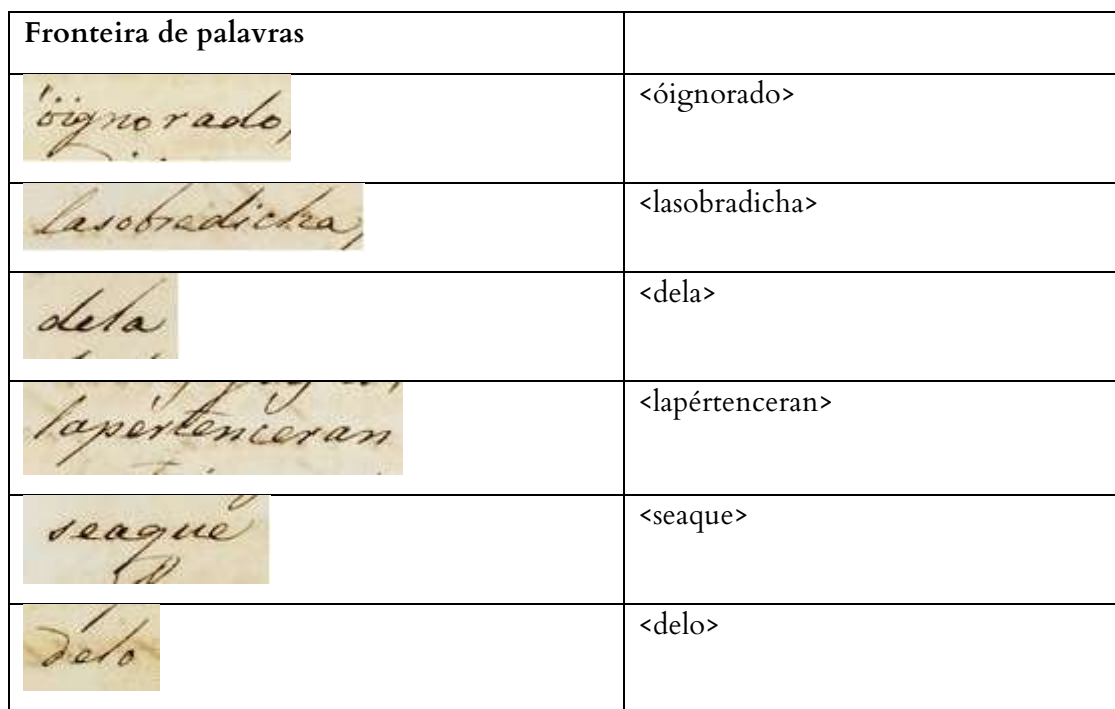 Fronteira de palavras
óignorado, <óignorado>
lasobradicha, <lasobradicha>
dela <dela>
lapértenceran <lapértenceran>
seaqué <seaque>
delo <delo>